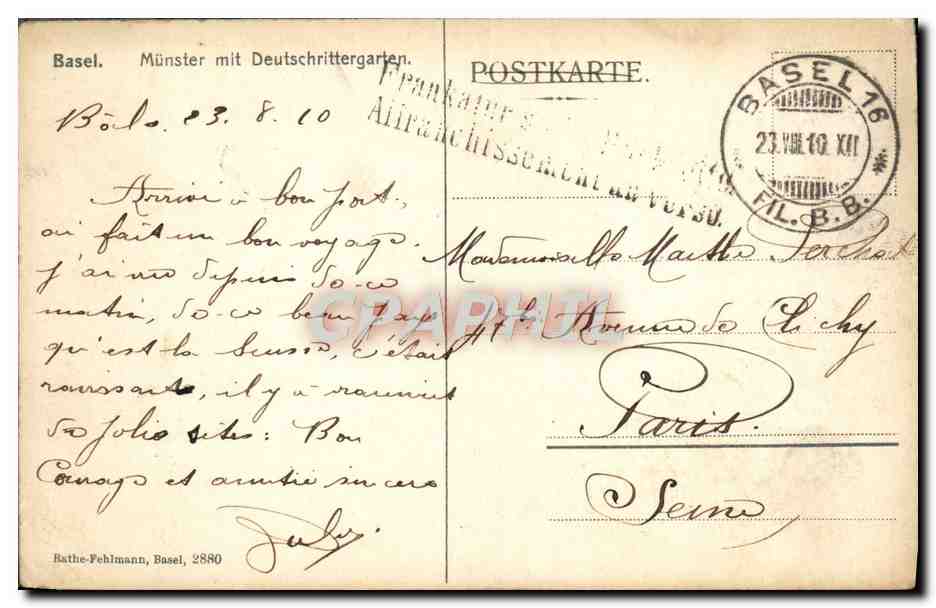 Basel. Münster mit Deutschrittergarten.
POSTKARTE.
Frankatur
Affranchissement au verso.
BASEL 16
23.VIII.10. XII
FIL. B. B.
Bâle 23. 8. 10
Arrivé à bon port,
ai fait un bon voyage.
J'ai vu depuis ce
matin, ce beau pays
qu'est la Suisse, c'était
ravissant, il y a vraiment
de jolis sites: Bon
Courage et amitié sincère
Mademoiselle Marthe
47 bis Avenue de Clichy
Paris.
Seine
CPAPHIL
Rathe-Fehlmann, Basel, 2880